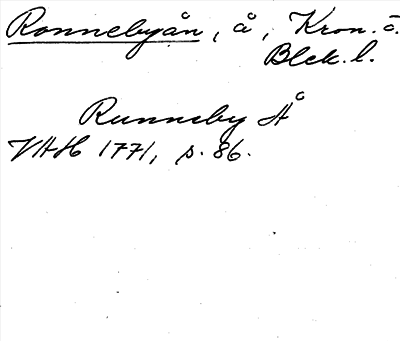 Ronnebyån, å, Kron. ö.
Blek. l.
Runneby Å
VAH 1771, s. 86.